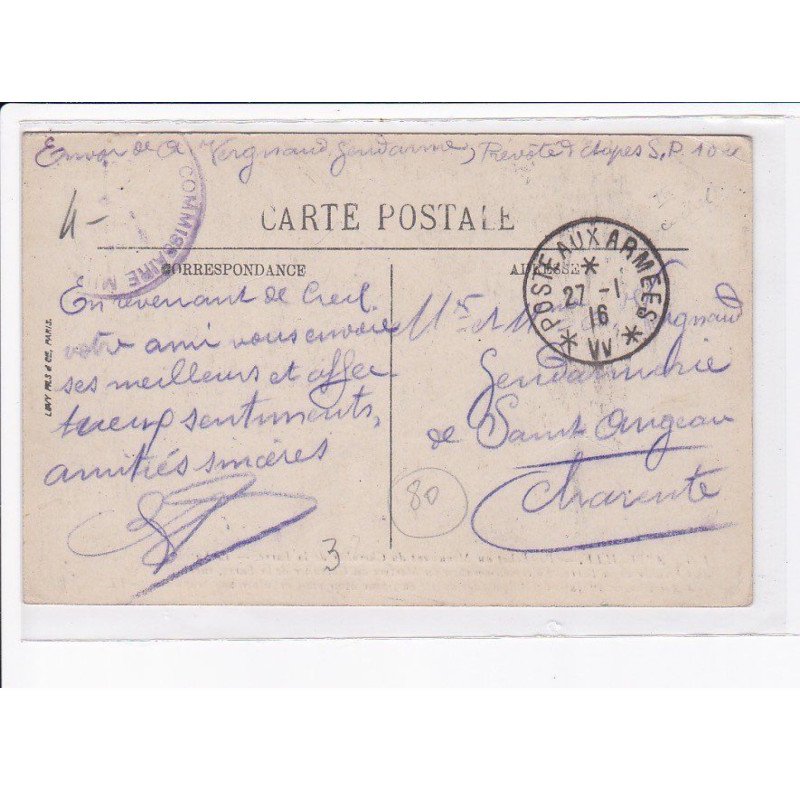 Envoi de A Vergnaud, Gendarme, Prévôté d'étapes S.P. 104
4-
COMMISSAIRE MI
CARTE POSTALE
CORRESPONDANCE
ADRESSE
POSTE AUX ARMEES
27 -1
16
* VV *
En revenant de Creil
votre ami vous envoie
ses meilleurs et affec
tueux sentiments,
amitiés sincères
Mr et Mme Vergnaud
Gendarmerie
de Saint Angeau
Charente
80
3
LEVY FILS & CIE, PARIS.